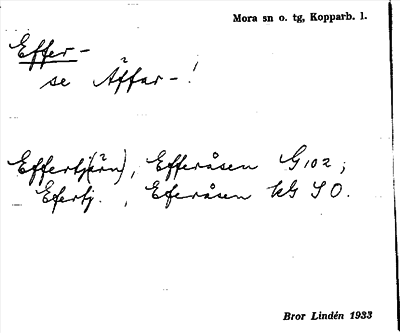 Mora sn o. tg, Kopparb. l.
Effer-
se Äffar-!
Effertj(ärn), Efferåsen G102;
Efertj., Eferåsen kG SO.
Bror Lindén 1933